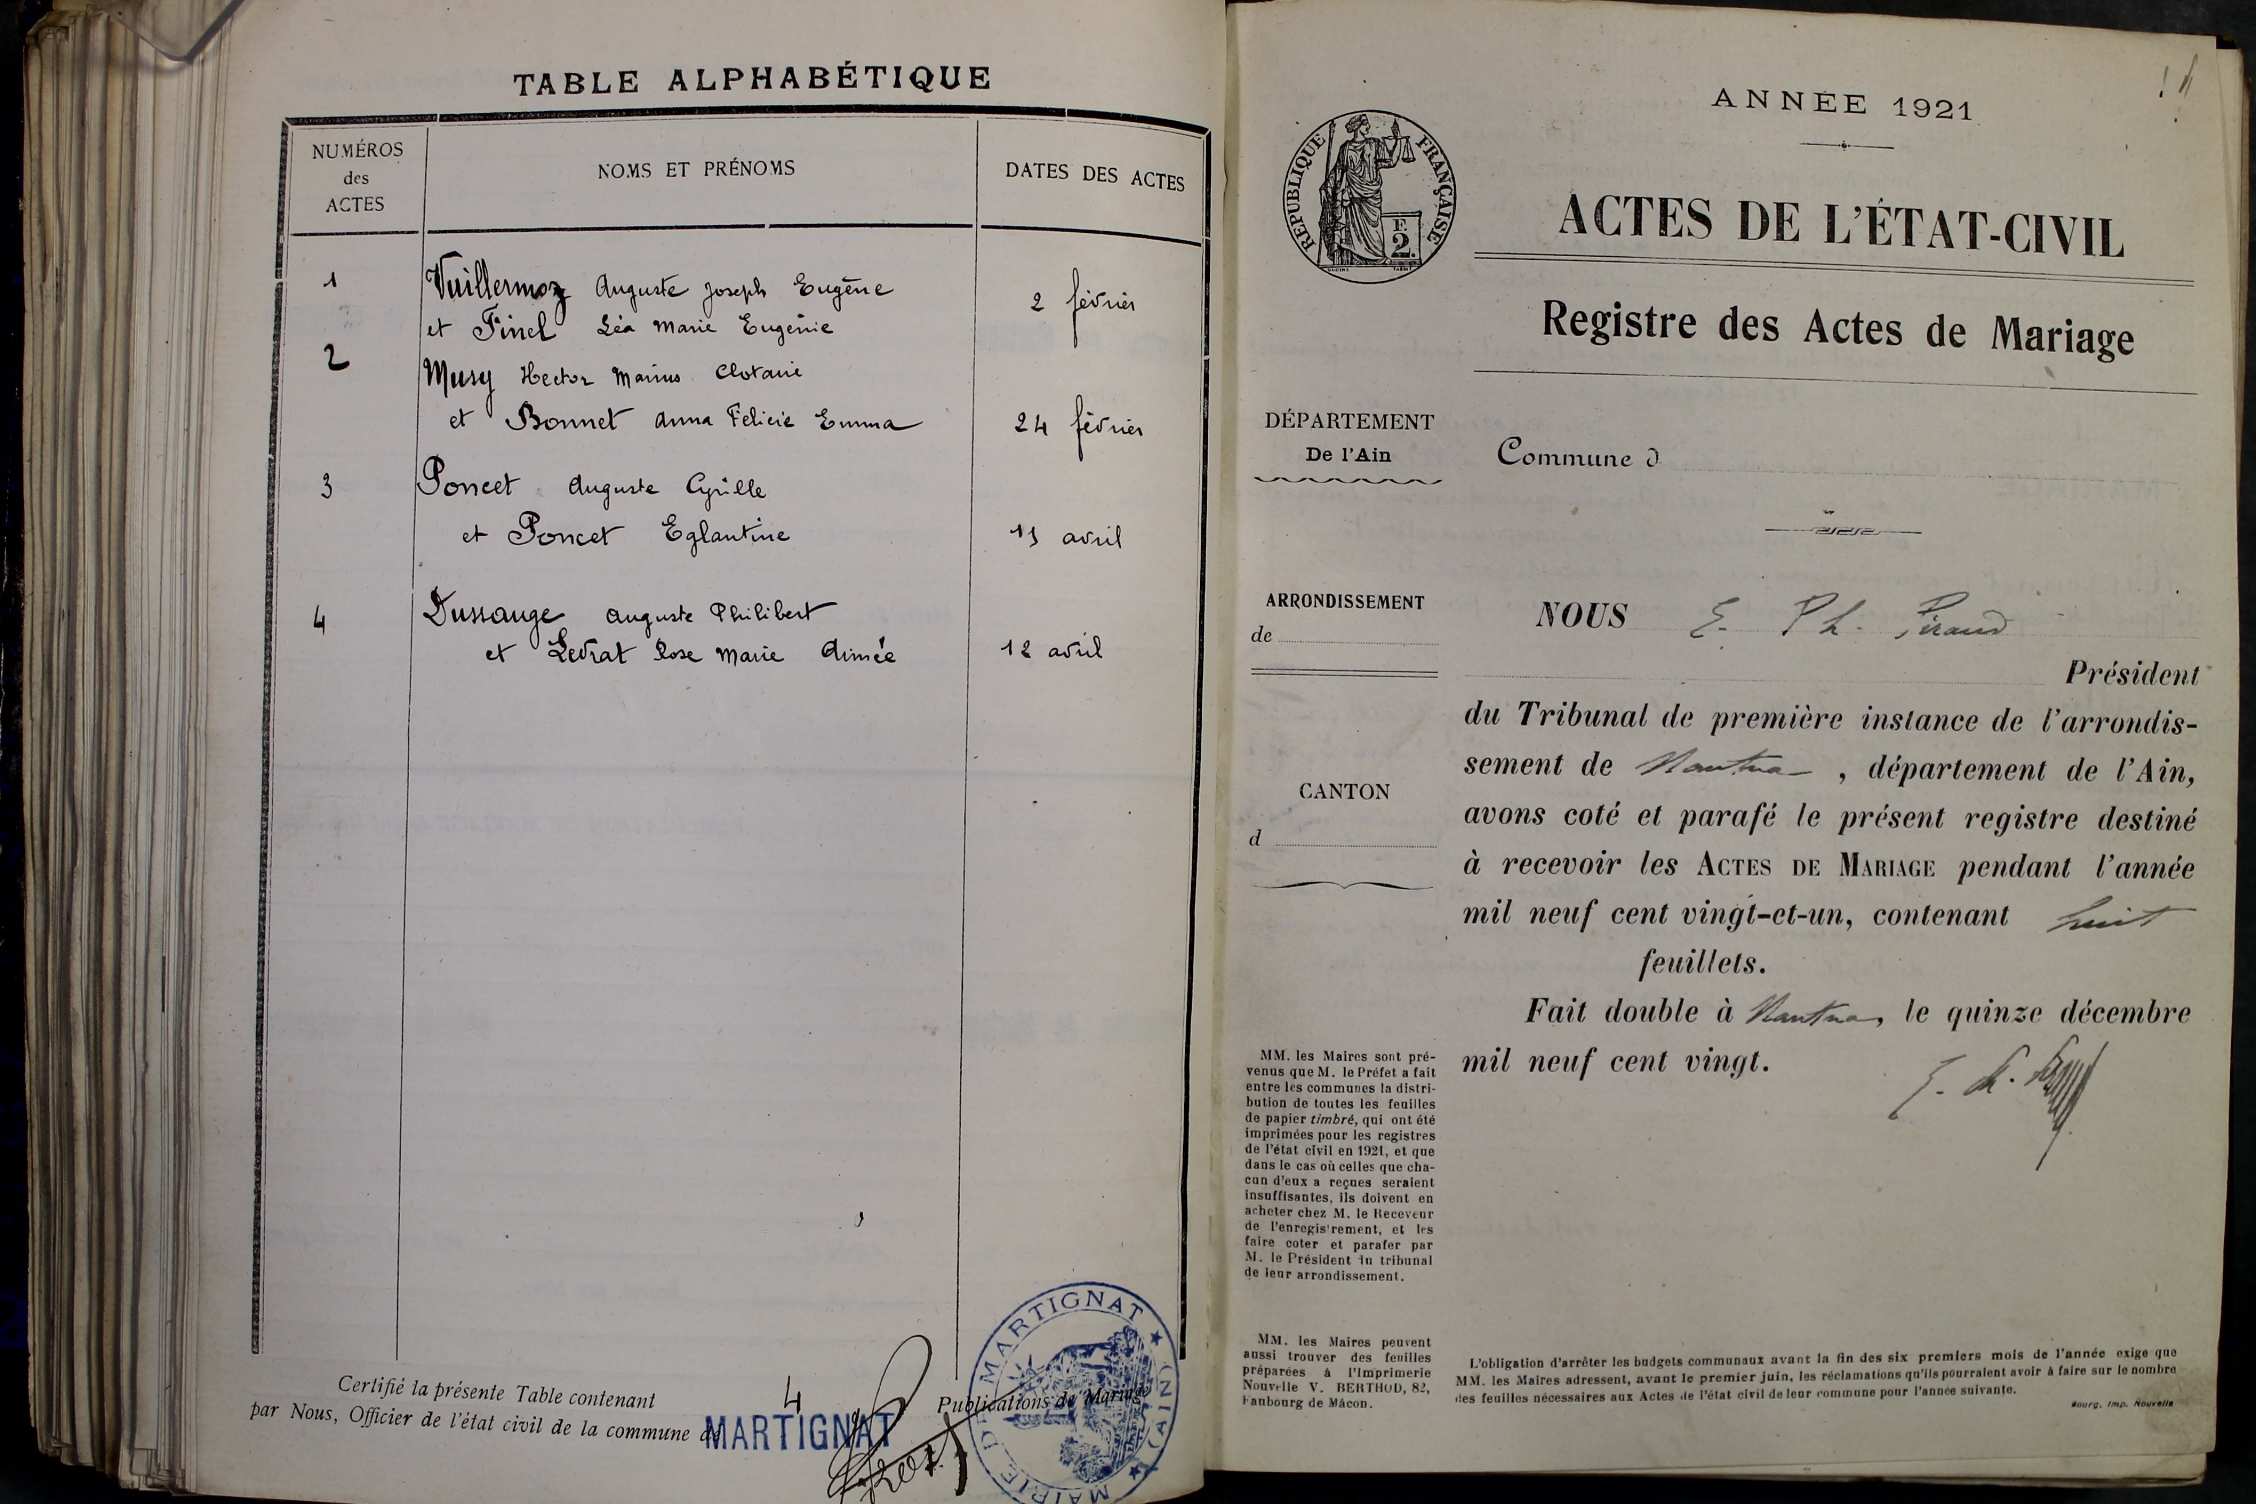 TABLE ALPHABÉTIQUE
NUMÉROS
des
ACTES
NOMS ET PRÉNOMS
DATES DES ACTES
1
Vuillermoz Auguste Joseph Eugène
et Finel Léa Marie Eugénie
2 février
2
Musy Hector Marius Clotaire
et Bonnet Anna Félicie Emma
24 février
3
Poncet Auguste Cyrille
et Poncet Eglantine
avril
4
Dussauge Auguste Philibert
et Levrat Rose Marie Aimée
12 avril
Certifié la présente Table contenant 4 Publications de Mariage
par Nous, Officier de l'état civil de la commune de MARTIGNAT
MAIRIE DE MARTIGNAT (AIN)
ANNÉE 1921
RÉPUBLIQUE FRANÇAISE
F.
2.
ACTES DE L'ÉTAT-CIVIL
Registre des Actes de Mariage
DÉPARTEMENT
De l'Ain
Commune d
ARRONDISSEMENT
de
CANTON
d
NOUS E. Ph. Piraud
Président
du Tribunal de première instance de l'arrondis-
sement de Nantua, département de l'Ain,
avons coté et parafé le présent registre destiné
à recevoir les ACTES DE MARIAGE pendant l'année
mil neuf cent vingt-et-un, contenant huit
feuillets.
Fait double à Nantua, le quinze décembre
mil neuf cent vingt.
MM. les Maires sont pré-
venus que M. le Préfet a fait
entre les communes la distri-
bution de toutes les feuilles
de papier timbré, qui ont été
imprimées pour les registres
de l'état civil en 1921, et que
dans le cas où celles que cha-
cun d'eux a reçues seraient
insuffisantes, ils doivent en
acheter chez M. le Receveur
de l'enregistrement, et les
faire coter et parafer par
M. le Président du tribunal
de leur arrondissement.
MM. les Maires peuvent
aussi trouver des feuilles
préparées à l'Imprimerie
Nouvelle V. BERTHOD, 82,
Faubourg de Mâcon.
L'obligation d'arrêter les budgets communaux avant la fin des six premiers mois de l'année exige que
MM. les Maires adressent, avant le premier juin, les réclamations qu'ils pourraient avoir à faire sur le nombre
des feuilles nécessaires aux Actes de l'état civil de leur commune pour l'année suivante.
Bourg, Imp. Nouvelle